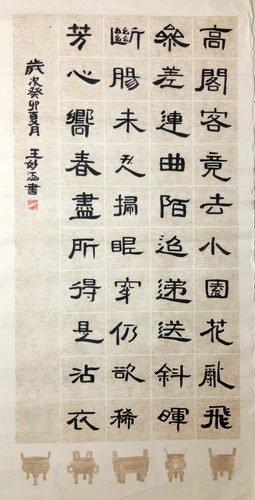 高閣客竟去小園花亂飛
參差連曲陌迢遞送斜暉
斷腸未忍掃眼穿仍欲稀
芳心嚮春盡所得是沾衣
歲次癸卯夏月 王妙涵書